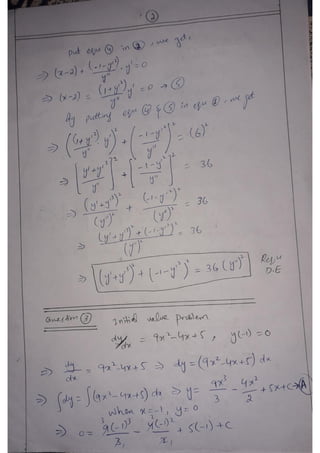 ②
put equ ④ in ②, we get,
⇒ (x-2) + (-1-y'²)/y'' · y' = 0
⇒ (x-2) = (1+y'²)/y'' y' = 0 → ⑤
By putting equ ④ & ⑤ in equ ①, we get
⇒ ((1+y'²)/y'' · y')² + (-1-y'²/y'')² = (6)²
⇒ [y'+y'³/y'']² + [-1-y'²/y'']² = 36
⇒ (y'+y'³)²/(y'')² + (-1-y'²)²/(y'')² = 36
⇒ (y'+y'³)² + (-1-y'²)²/(y'')² = 36
⇒ (y'+y'³)² + (-1-y'²)² = 36(y'')² Requ D.E
Question ③ Initial value problem
dy/dx = 9x²-4x+5 , y(-1) = 0
⇒ dy/dx = 9x²-4x+5 ⇒ dy = (9x²-4x+5) dx
⇒ ∫dy = ∫(9x²-4x+5) dx ⇒ y = 9x³/3 - 4x²/2 + 5x+C → A
when x=-1, y=0
⇒ 0 = 9(-1)³/3 - 4(-1)²/2 + 5(-1)+C